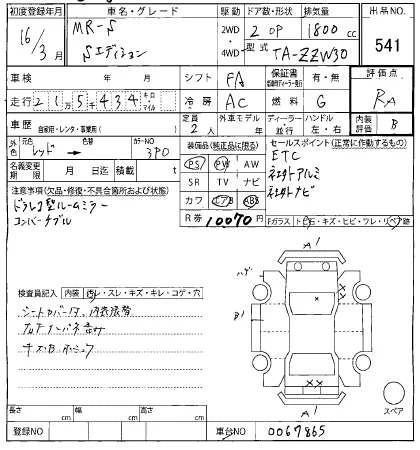 初度登録年月 車名・グレード 駆動 ドア数・形状 排気量 出品NO.
16/3月 MR-S Sエディション 2WD 4WD 2 OP 1800 cc 541
型式 TA-ZZW30
車検 年 月 シフト FA 保証書 有・無 評価点
走行 21万5千434 キロ マイル 冷房 AC 燃料 G RA
車歴 自家用・レンタ・事業用( ) 定員 2人 外車モデル 年 ディーラー 並行 ハンドル 左・右 内装評価 B
外色 元色 レッド 色替 カラーNO 3P0 装備品 (純正品に限る) セールスポイント (正常に作動するもの)
PS PW AW
SR TV ナビ
カワ エアB ABS
ETC
社外アルミ
社外ナビ
名義変更期限 月 日迄 積載 t
R券 10070円
注意事項 (欠品・修復・不具合箇所および状態)
ドラレコ型ルームミラー
コンバーチブル
Fガラス
A1
ハゲ
B1
検査員記入 内装 汚レ・スレ・キズ・キレ・コゲ・穴
シートカバー
A1
スペア
長さ cm 幅 cm 高さ cm
登録NO 車台NO 0067865